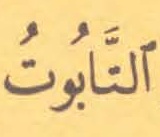 ٱلتَّابُوتُ